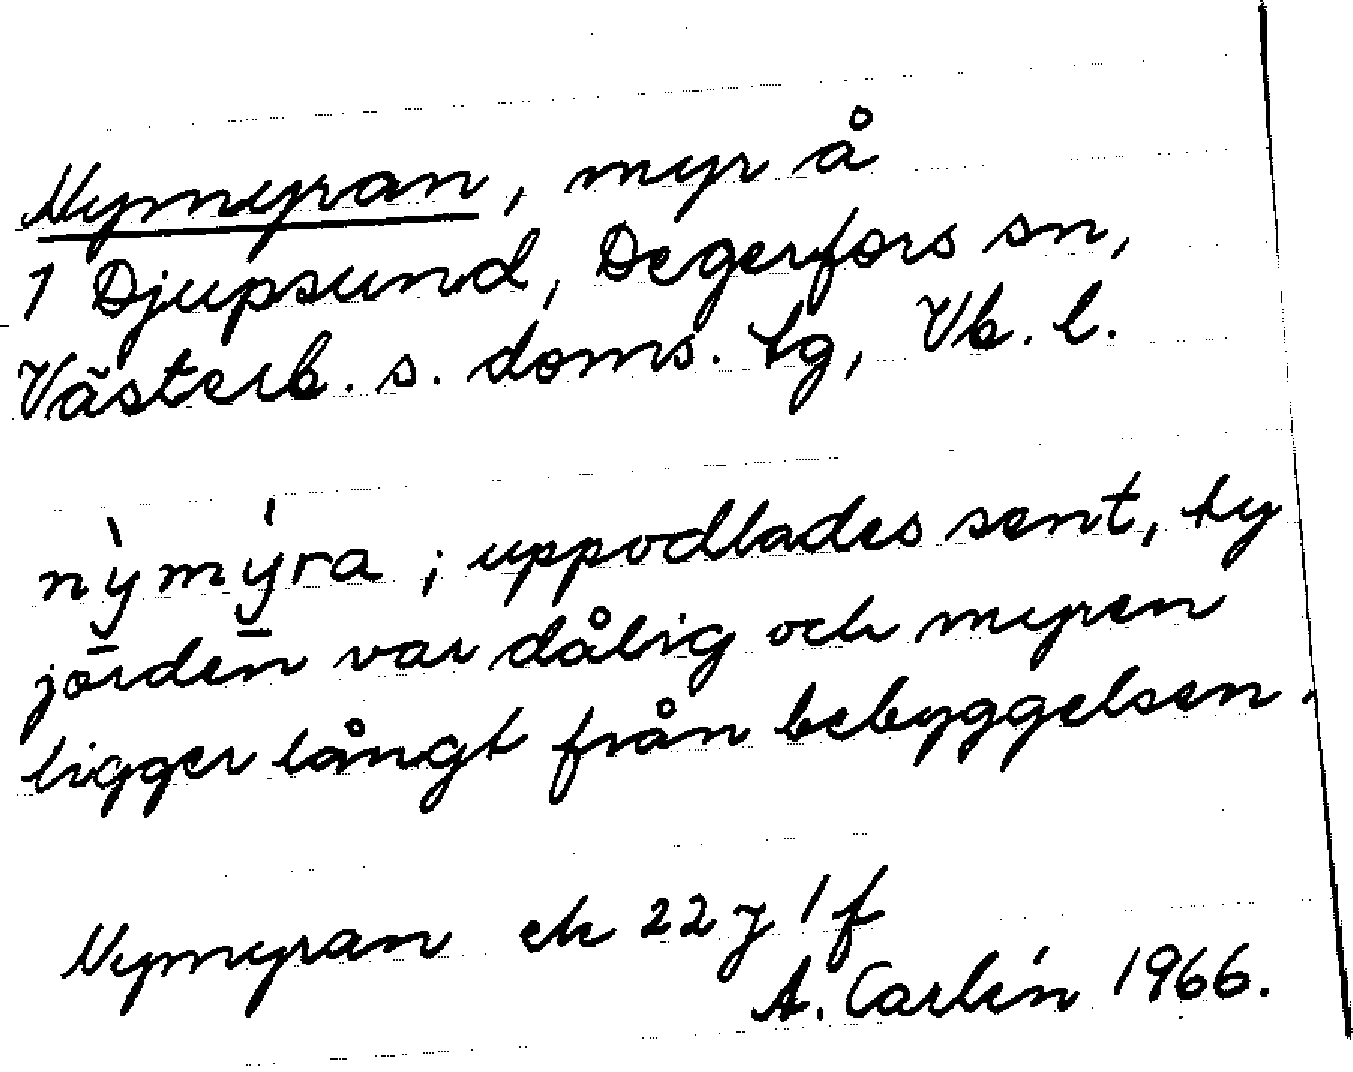 Nymyran, myr å
1 Djupsund, Degerfors sn,
Västerb. s. doms. tg, Vb. l.
nỳmýra; uppodlades sent, ty
jorden var dålig och myren
ligger långt från bebyggelsen.
Nymyran ek 22 j 1 f
A. Carlén 1966.